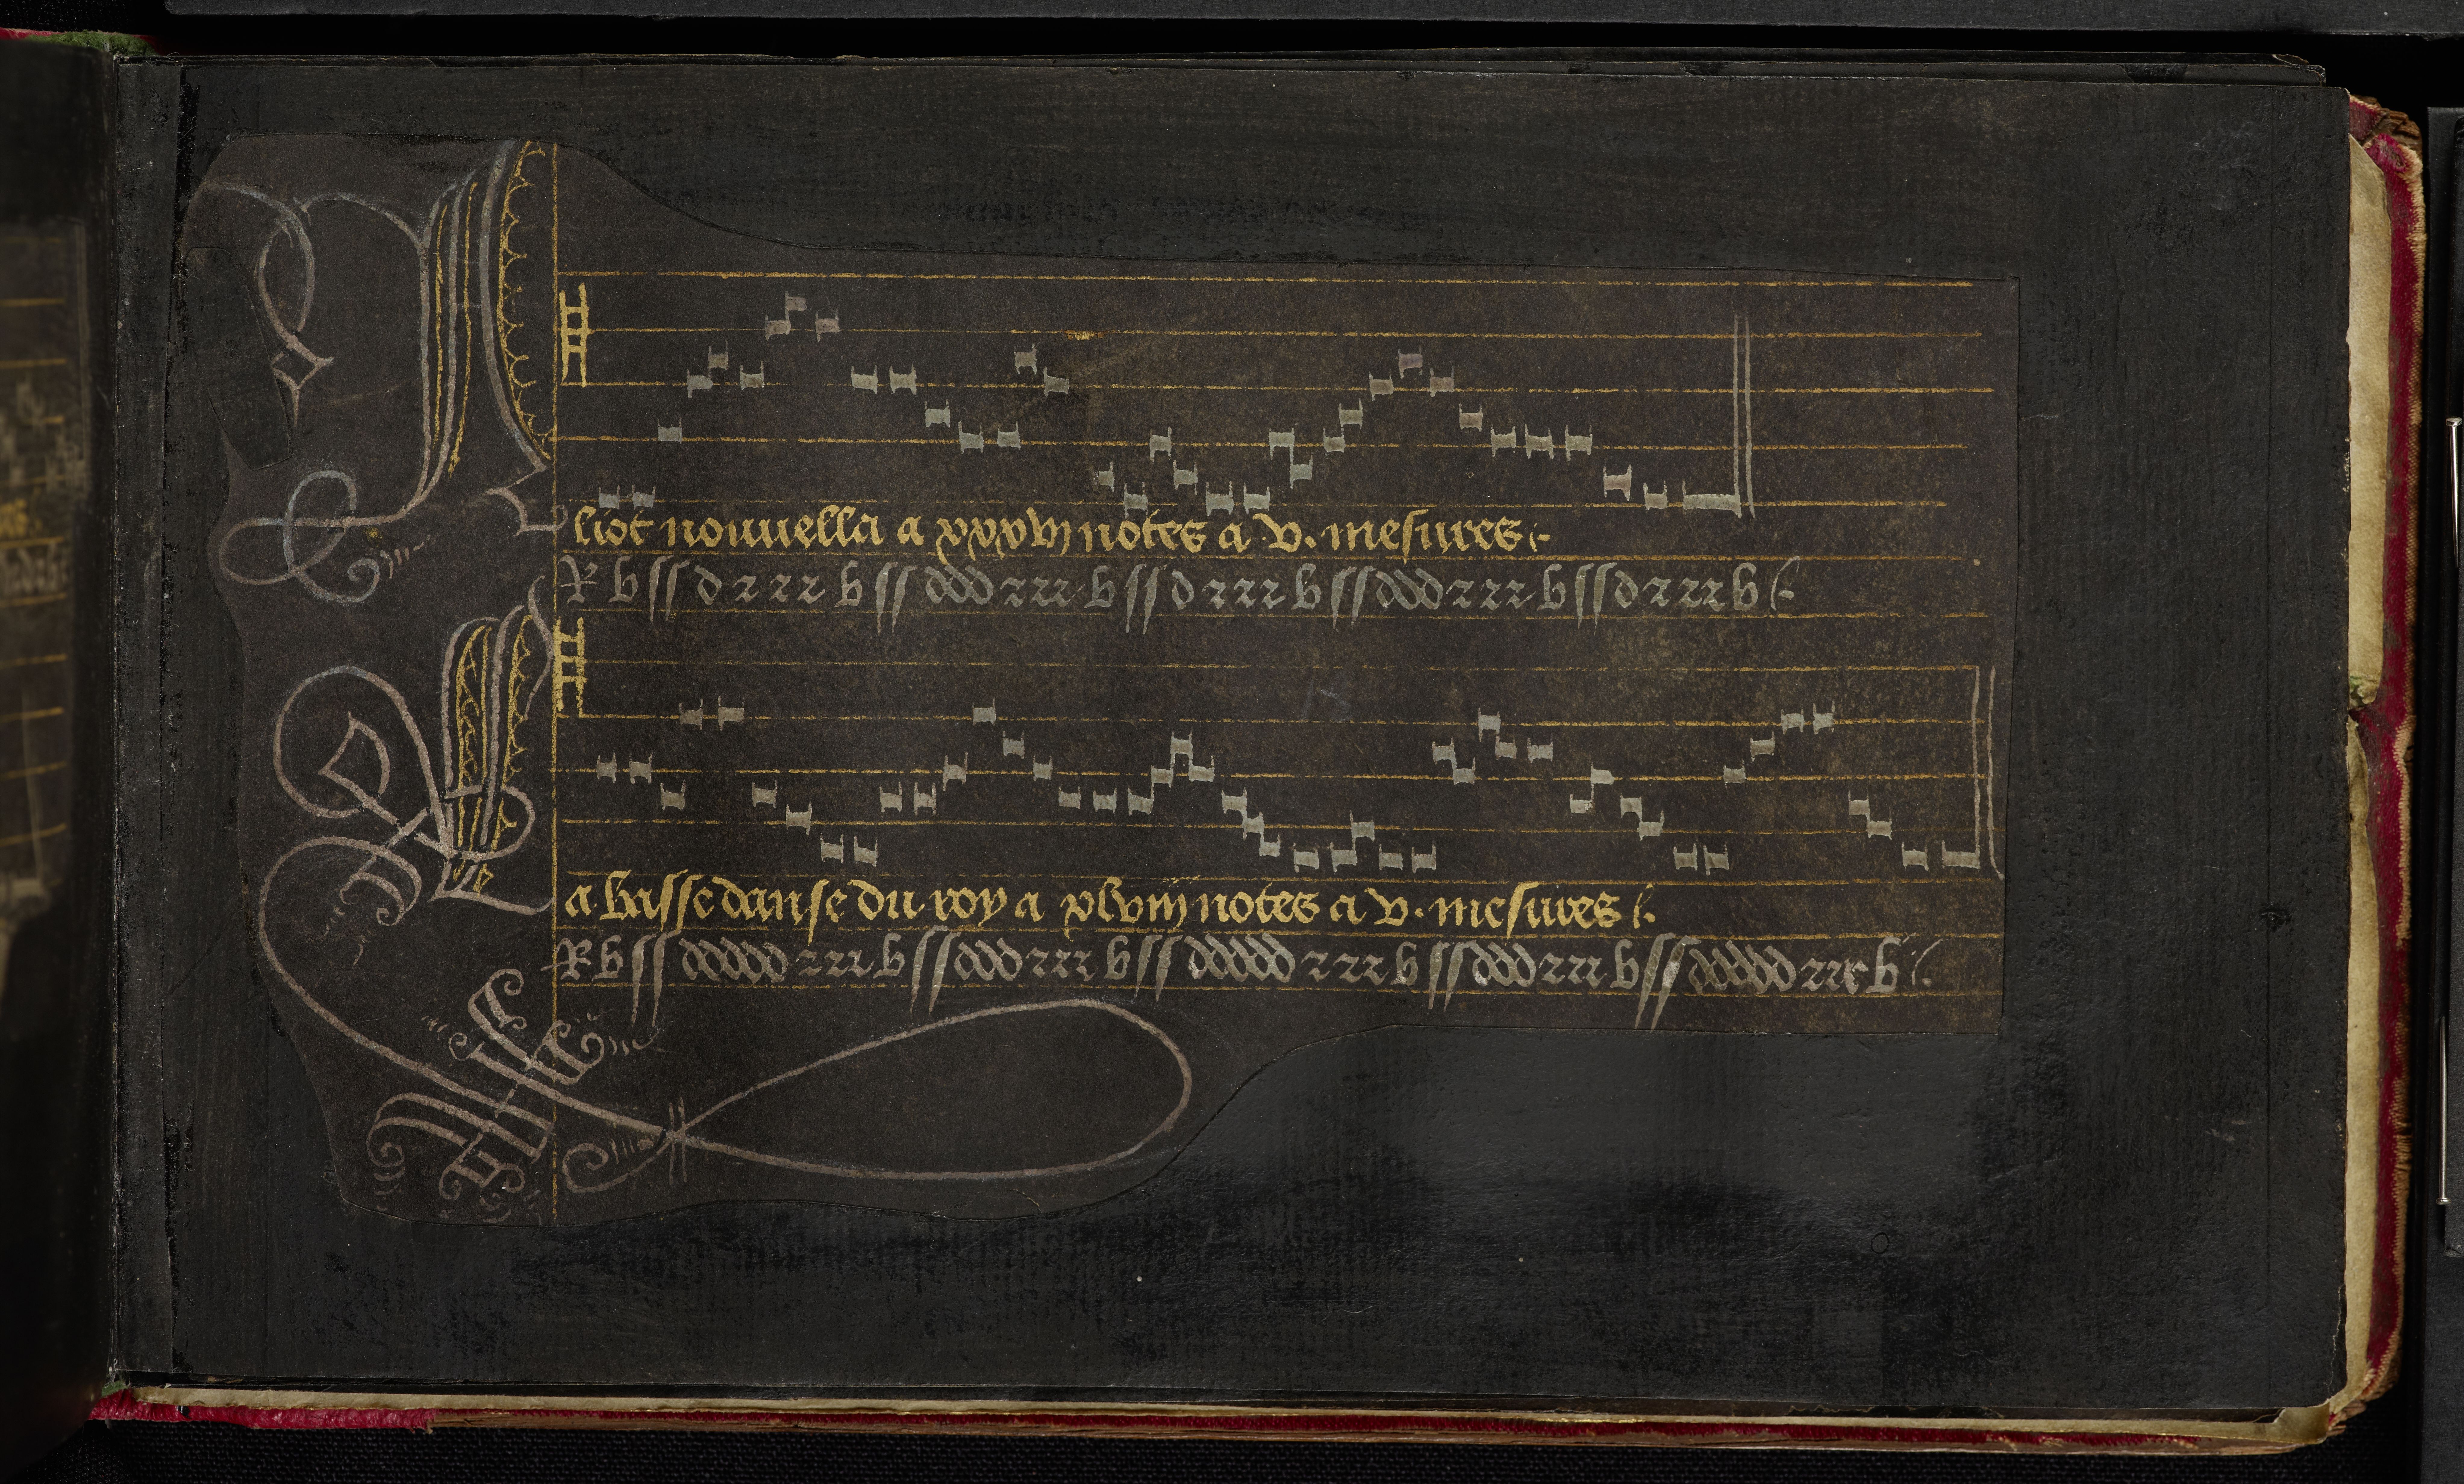 Aliot nouuella a xxxvj notes a v. mesures
R b ss d r r r b ss ddd rrr b ss d rrr b ss ddd rrr b ss d rrr b
La basse danse du roy a xlviij notes a v. mesures
R b ss ddddd rrr b ss ddd rrr b ss ddddd rrr b ss ddd rrr b ss ddddd rrr b